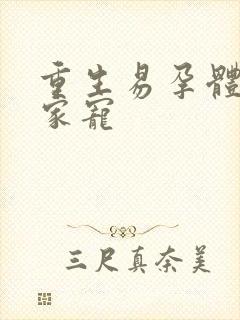 重生易孕體
家寵
三尺真奈美